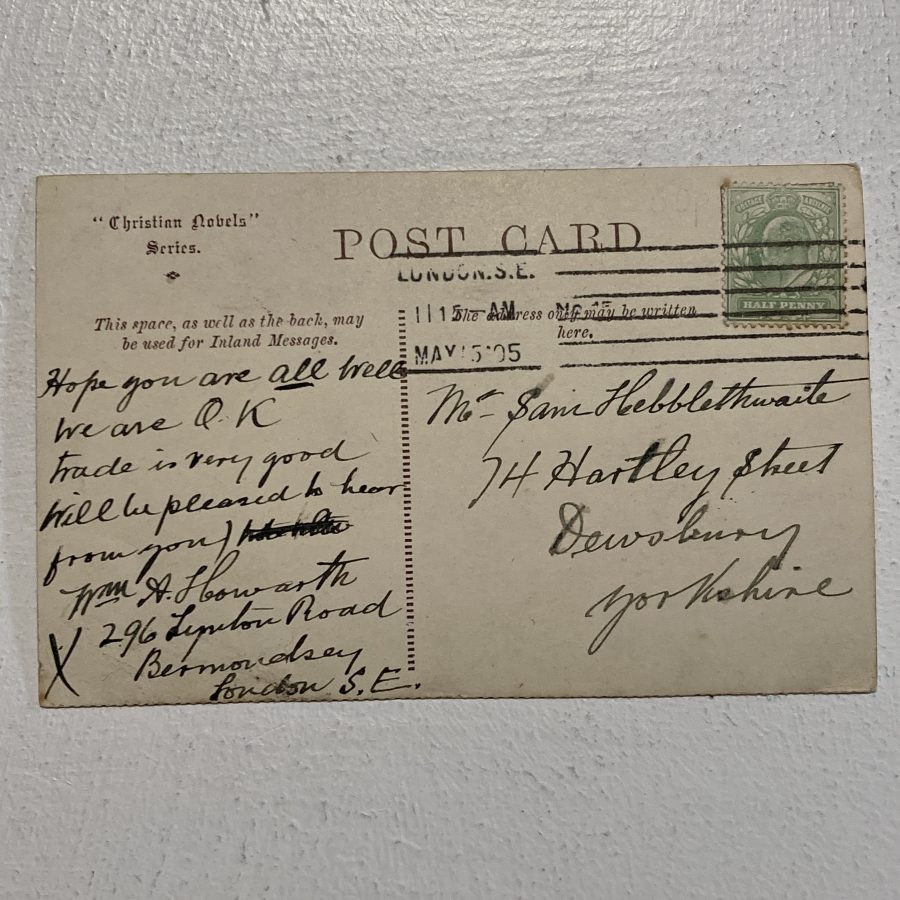 "Christian Novels"
Series.
POST CARD
LONDON.S.E.
11 15 AM
MAY 5 '05
HALF PENNY
This space, as well as the back, may
be used for Inland Messages.
The address only may be written
here.
Hope you are all well
We are O.K
trade is very good
Will be pleased to hear
from you)
Wm A. Howarth
296 Lynton Road
Bermondsey
London S.E.
X
Mr Sam Hebblethwaite
74 Hartley Street
Dewsbury
Yorkshire